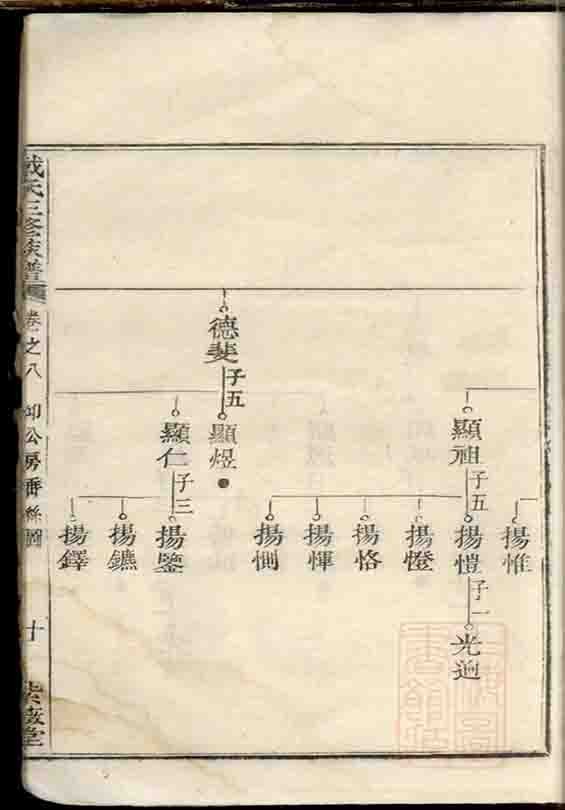 戴氏三修族譜
卷之八
公房垂絲圖
十
紫薇堂
德斐
子五
顯祖
子五
顯煜
顯仁
子三
揚惟
揚愷
子一
揚憕
揚恪
揚惲
揚惻
揚鑒
揚鑣
揚鐸
光迥